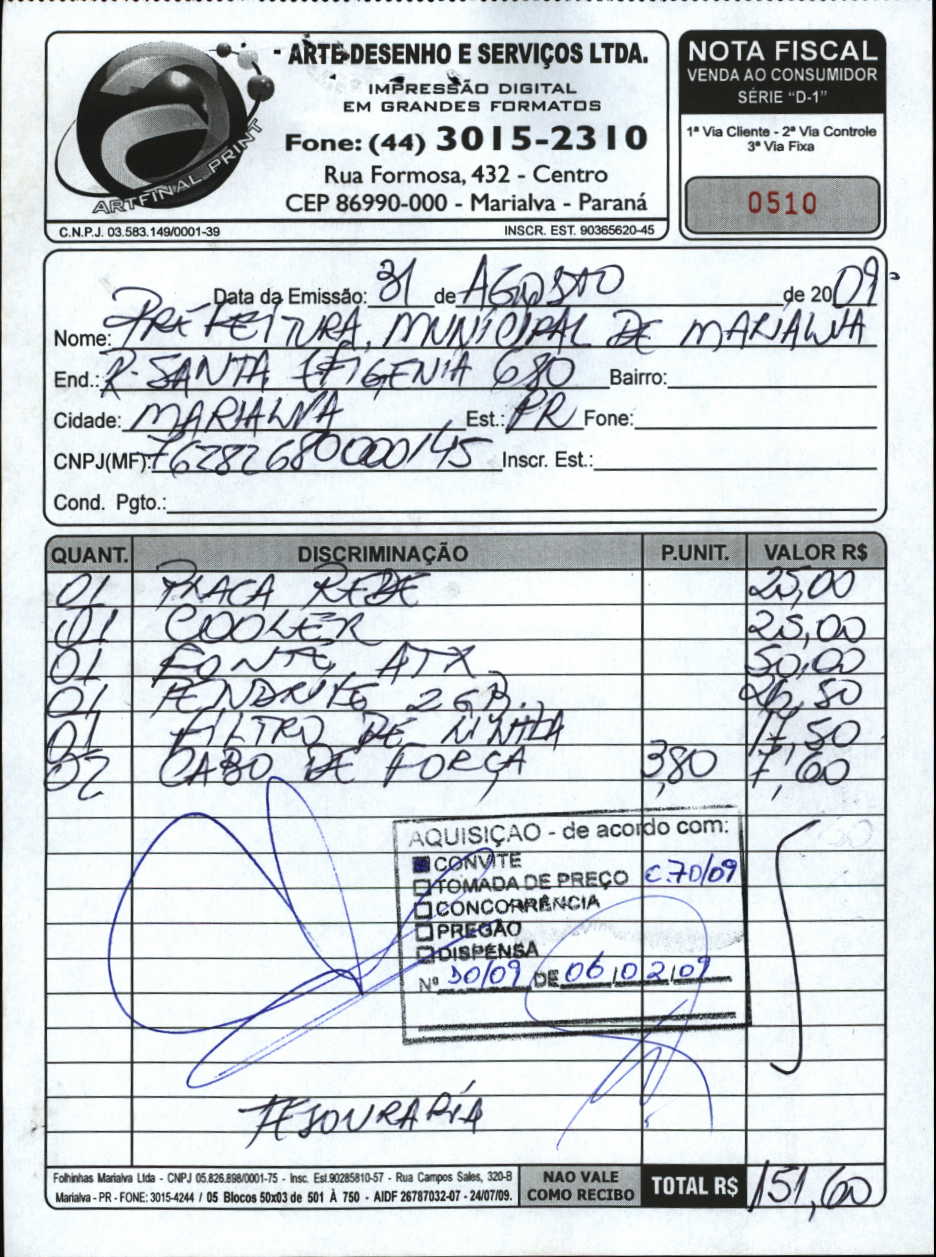 ARTE DESENHO E SERVIÇOS LTDA.
IMPRESSÃO DIGITAL
EM GRANDES FORMATOS
Fone: (44) 3015-2310
Rua Formosa, 432 - Centro
CEP 86990-000 - Marialva - Paraná
ARTFINAL PRINT
C.N.P.J. 03.583.149/0001-39 INSCR. EST. 90365620-45
NOTA FISCAL
VENDA AO CONSUMIDOR
SÉRIE "D-1"
1ª Via Cliente - 2ª Via Controle
3ª Via Fixa
0510
Data da Emissão: 31 de AGOSTO de 2009
Nome: PREFEITURA MUNICIPAL DE MARIALVA
End.: R. SANTA EFIGENIA 680 Bairro:
Cidade: MARIALVA Est.: PR Fone:
CNPJ(MF): 76282680000145 Inscr. Est.:
Cond. Pgto.:
QUANT. DISCRIMINAÇÃO P.UNIT. VALOR R$
01 PLACA REDE 25,00
01 COOLER 25,00
01 FONTE ATX 50,00
01 PENDRIVE 2GB. 26,50
01 FILTRO DE LINHA 17,50
02 CABO DE FORÇA 3,80 7,60
AQUISIÇÃO - de acordo com:
CONVITE
TOMADA DE PREÇO C.70/09
CONCORRÊNCIA
PREGÃO
DISPENSA
Nº 30/09 DE 06/02/09
TESOURARIA
Folhinhas Marialva Ltda - CNPJ 05.826.898/0001-75 - Insc. Est.90285810-57 - Rua Campos Sales, 320-B
Marialva - PR - FONE: 3015-4244 / 05 Blocos 50x03 de 501 À 750 - AIDF 26787032-07 - 24/07/09.
NAO VALE
COMO RECIBO
TOTAL R$ 151,60